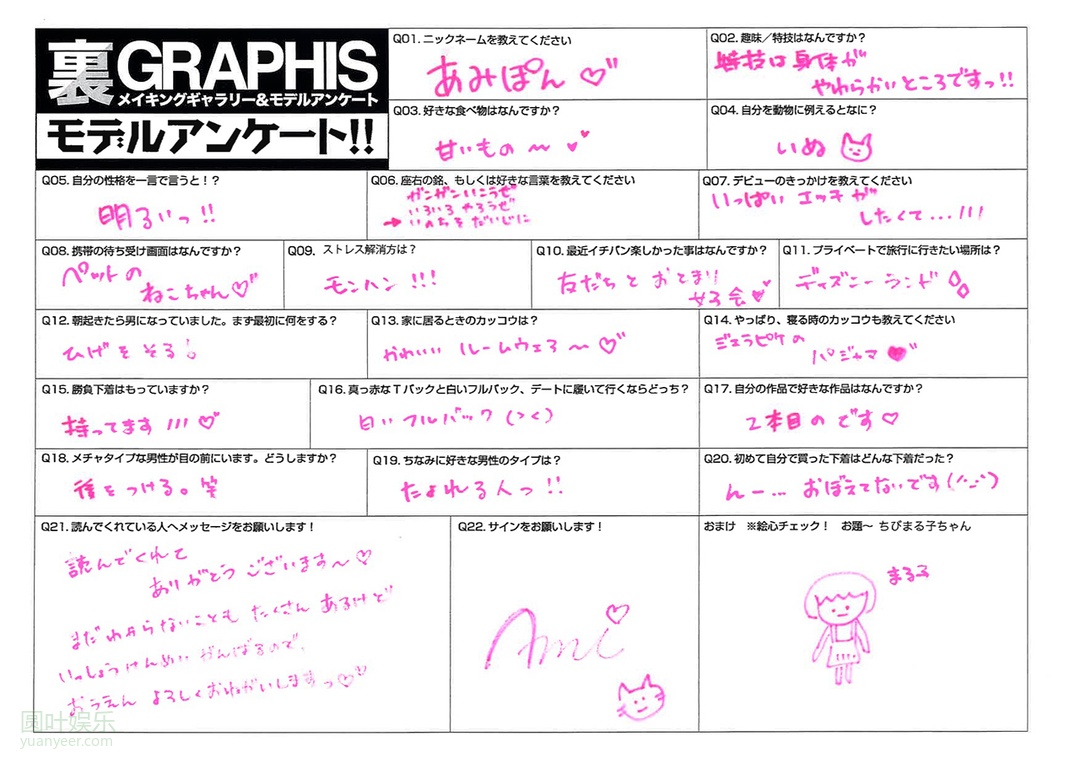 裏GRAPHIS
メイキングギャラリー&モデルアンケート
モデルアンケート!!
Q01. ニックネームを教えてください
あみぽん♡
Q02. 趣味／特技はなんですか？
特技は身体が
やわらかいところですっ!!
Q03. 好きな食べ物はなんですか？
甘いもの〜
Q04. 自分を動物に例えるとなに？
いぬ
Q05. 自分の性格を一言で言うと！？
明るいっ!!
Q06. 座右の銘、もしくは好きな言葉を教えてください
ガンガンいこうぜ
いろいろやろうぜ
→いのちをだいじに
Q07. デビューのきっかけを教えてください
いっぱいエッチが
したくて...!!!
Q08. 携帯の待ち受け画面はなんですか？
ペットの
ねこちゃん♡
Q09. ストレス解消方は？
モンハン!!!
Q10. 最近イチバン楽しかった事はなんですか？
友だちとおとまり
女子会♥
Q11. プライベートで旅行に行きたい場所は？
ディズニーランド
Q12. 朝起きたら男になっていました。まず最初に何をする？
ひげをそる
Q13. 家に居るときのカッコウは？
かわいいルームウェア〜♡
Q14. やっぱり、寝る時のカッコウも教えてください
ジェラピケの
パジャマ♥
Q15. 勝負下着はもっていますか？
持ってます!!!♡
Q16. 真っ赤なTバックと白いフルバック、デートに履いて行くならどっち？
白いフルバック(>く)
Q17. 自分の作品で好きな作品はなんですか？
2本目のです♡
Q18. メチャタイプな男性が目の前にいます。どうしますか？
後をつける。笑
Q19. ちなみに好きな男性のタイプは？
たよれる人っ!!
Q20. 初めて自分で買った下着はどんな下着だった？
んー...おぼえてないです
Q21. 読んでくれている人へメッセージをお願いします！
読んでくれて
ありがとうございます〜♡
まだわからないこともたくさんあるけど
いっしょうけんめいがんばるので、
おうえんよろしくおねがいしますっ♡
Q22. サインをお願いします！
Ami
おまけ　※絵心チェック！　お題〜ちびまる子ちゃん
まる子
圆叶娱乐
yuanyeer.com